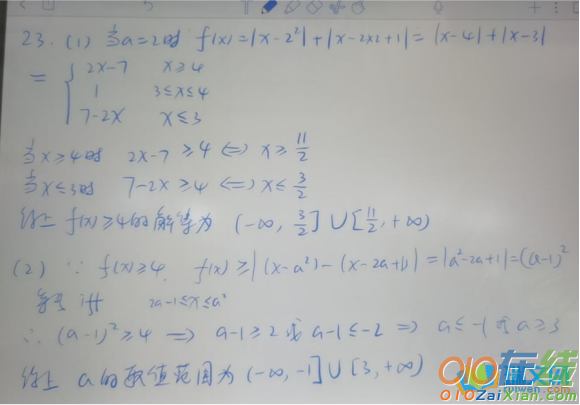 23. (1) 当a=2时 f(x)=|x-2²|+|x-2×2+1|=|x-4|+|x-3|
= { 2x-7 x≥4
1 3≤x≤4
7-2x x≤3
当x≥4时 2x-7≥4 ⇔ x≥11/2
当x≤3时 7-2x≥4 ⇔ x≤3/2
综上 f(x)≥4的解集为 (-∞, 3/2]∪[11/2, +∞)
(2) ∵ f(x)≥4, f(x)≥|(x-a²)-(x-2a+1)|=|a²-2a+1|=(a-1)²
等号 iff 2a-1≤x≤a²
∴ (a-1)²≥4 ⇒ a-1≥2或a-1≤-2 ⇒ a≤-1或a≥3
综上 a的取值范围为 (-∞, -1]∪[3, +∞)
OIO在线
OIOZaiXian.com
ruiwen.com